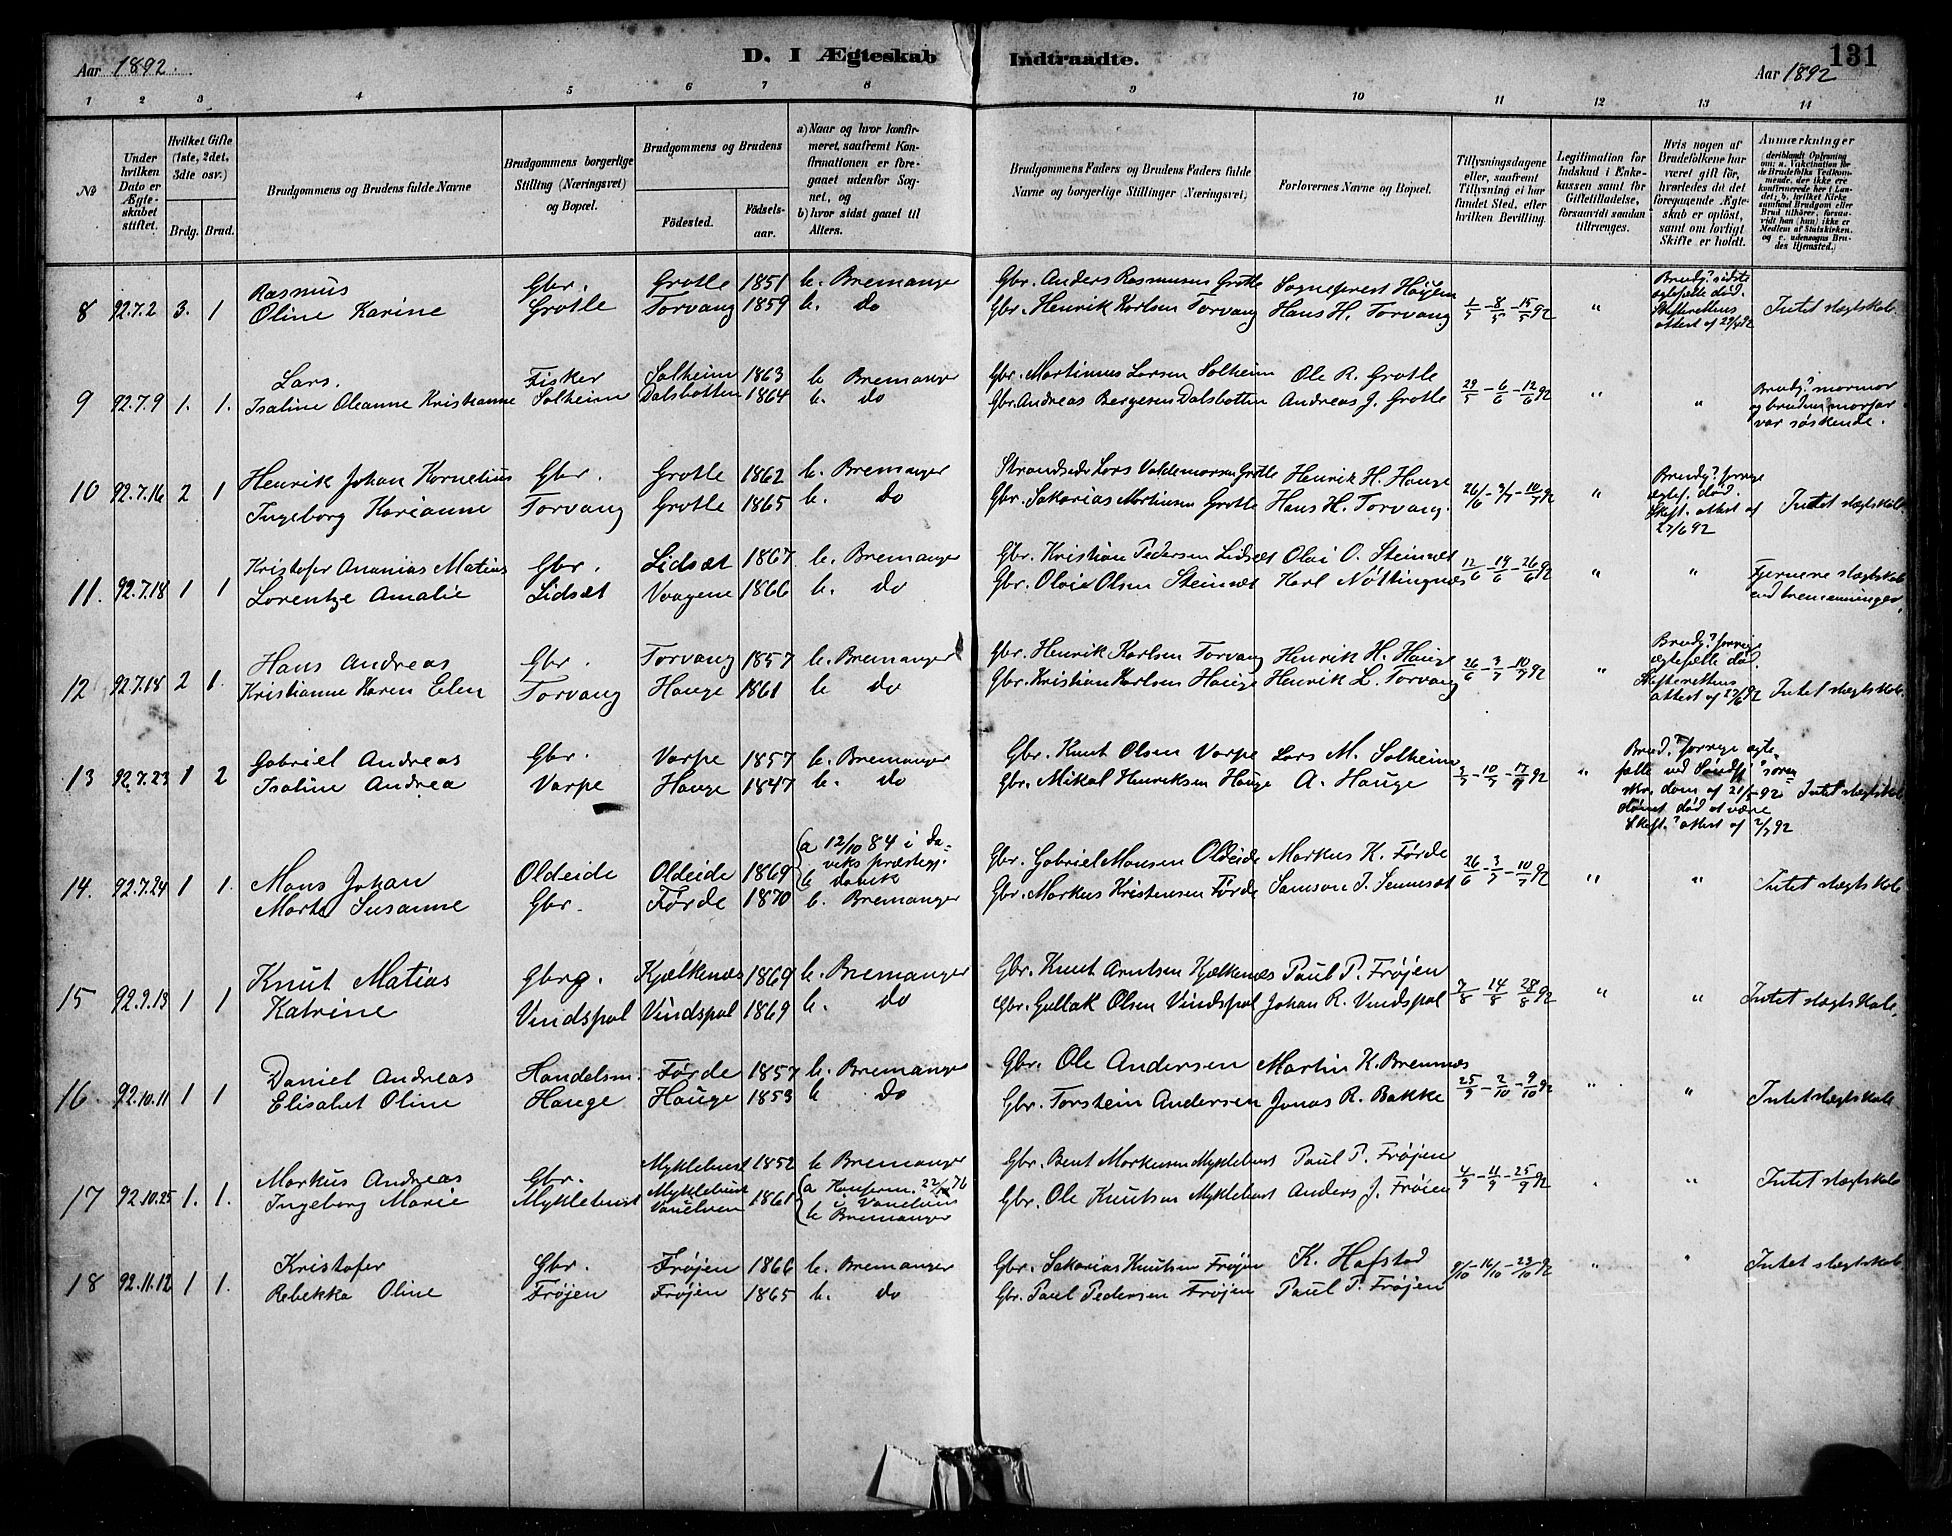 Aar 1892. D. I Ægteskab Indtraadte. 131
Aar 1892
1 2 3 4 5 6 7 8 9 10 11 12 13 14
No
Under hvilken Dato er Ægteskabet stiftet.
Hvilket Gifte (1ste, 2det, 3die osv.)
Brdg. Brud.
Brudgommens og Brudens fulde Navne
Brudgommens borgerlige Stilling (Næringsvei) og Bopæl.
Brudgommens og Brudens
Födested. Födselsaar.
a) Naar og hvor konfirmeret, saafremt Konfirmationen er foregaaet udenfor Sognet, og
b) hvor sidst gaaet til Alters.
Brudgommens Faders og Brudens Faders fulde Navne og borgerlige Stillinger (Næringsvei)
Forlovernes Navne og Bopæl.
Tillysningsdagene eller, saafremt Tillysning ei har fundet Sted, efter hvilken Bevilling.
Legitimation for Indskud i Enkekassen samt for Giftetilladelse, forsaavidt saadan tiltrænges.
Hvis nogen af Brudefolkene har været gift för, hvorledes da det foregaaende Ægteskab er oplöst, samt om lovligt Skifte er holdt.
Anmærkninger
deriblandt Oplysning om: a. Vakcination for de Brudefolks Vedkommende, der ikke ere konfirmerede her i Landet; b. hvilket Kirkesamfund Brudgom eller Brud tilhörer, forsaavidt han (hun) ikke er Medlem af Statskirken, og c. udensogns Brudes Hjemsted.)
8 92.7.2 3. 1 Rasmus Gbr. Grotle 1851 b. Bremanger Gbr. Anders Rasmusen Grotle Sogneprest Høyem 1/5 - 8/5 - 15/5 92 " Brudg.s sidste ægtefælle død. Skifterettens attest af Intet slægtskab.
Oline Karine Grotle Torvang 1859 b. do Gbr. Henrik Karlsen Torvang Hans H. Torvang
9 92.7.9 1. 1. Lars. Fisker Solheim 1863 b Bremanger Gbr. Martinus Larsen Solheim Ole R. Grotle 29/5 - 6/6 - 12/6 92 " " Brudg.s mormor og brudens morfar var søskende.
Isaline Oleanne Kristianne Solheim Dalsbotten 1864 b. do Gbr. Andreas Bergesen Dalsbotten Andreas J. Grotle
10 92.7.16 2 1 Henrik Johan Kornelius Gbr. Grotle 1862 b. Bremanger Strandsidr. Lars Valdemarsen Grotle Henrik H. Hauge 26/6 - 3/7 - 10/7 92 " Brudg.s forrige ægtef. død. Skift. attest af 27/6 92 Intet slægtskab.
Ingeborg Karianne Torvang Grotle 1865 b. do Gbr. Sakarias Martinsen Grotle Hans H. Torvang.
11. 92.7.18 1 1 Kristofer Ananias Matias Gbr. Lidsæt 1867 b. Bremanger Gbr. Kristian Pedersen Lidsæt Olai O. Steinset 12/6 - 19/6 - 26/6 92 " " Fjernere slægtskab end
Lorentze Amalie Lidsæt Vaagene 1866 b. do Gbr. Olai Olsen Steinset Karl Nøttingnæs
12 92.7.18 2 1. Hans Andreas Gbr. Torvang 1857 b. Bremanger Gbr. Henrik Karlsen Torvang Henrik H. Hauge 26/6 - 3/7 - 10/7 92 " Brudg.s forrige ægtefælle død. Skifterettens attest af 27/6 92 Intet slægtskab.
Kristianne Karen Elen Torvang Hauge 1861 b do Gbr. Kristian Karlsen Hauge Henrik L. Torvang
13 92.7.23 1 2 Gabriel Andreas Gbr. Varpe 1857 b. Bremanger Gbr. Knut Olsen Varpe Lars M. Solheim 3/7 - 10/7 - 17/7 92 " Brud.s forrige ægtefælle ved dom af dømt død at være Skift. attest af 2/7 92 Intet slægtskab
Isaline Andrea Varpe Hauge 1847 b. do Gbr. Mikal Henriksen Hauge A. Hauge
14. 92.7.24 1 1. Mons Johan Oldeide Oldeide 1869 (a 12/10 84 i Daviks præstegj. b davik Gbr. Gabriel Monsen Oldeide Markus K. Førde 26/6 - 3/7 - 10/7 92 " " Intet slægtskab
Marta Susanne Gbr. Førde 1870 b. Bremanger Gbr. Markus Kristensen Førde Samson J. Sennesæt
15 92.9.13 1 1 Knut Matias Gbrg. Kjælkenæs 1869 b. Bremanger Gbr. Knut Arntsen Kjælkenæs Paul P. Frøjen 7/8 - 14/8 - 28/8 92 " " Intet slægtskab.
Katrine Vindspol Vindspol 1869 b. do Gbr. Gullak Olsen Vindspol Johan R. Vindspol
16 92.10.11 1 1 Daniel Andreas Handelsm. Førde 1857 b. Bremanger Gbr. Ole Andersen Martin K. Bremnæs 25/9 - 2/10 - 9/10 92 " " Intet slægtskab
Elisabet Oline Hauge Hauge 1853 b do Gbr. Torstein Andersen Jonas R. Bakke
17 92.10.25 1. 1. Markus Andreas Gbr. Myklebust 1852 b Bremanger Gbr. Bent Markusen Myklebust Paul P. Frøjen 4/9 - 11/9 - 25/9 92 " Intet slægtskab
Ingeborg Marie Myklebust Myklebust Vanelven 1861 (a Konferm. i Vanelven b Bremanger Gbr. Ole Knutsen Myklebust Anders J. Frøien
18 92.11.12 1 1. Kristofer Gbr. Frøjen 1866 b. Bremanger Gbr. Sakarias Knutsen Frøjen K. Hafstad 9/10 - 16/10 - 23/10 92 " " Intet slægtskab
Rebekka Oline Frøjen Frøjen 1865 b. do Gbr. Paul Pedersen Frøjen Paul P. Frøjen